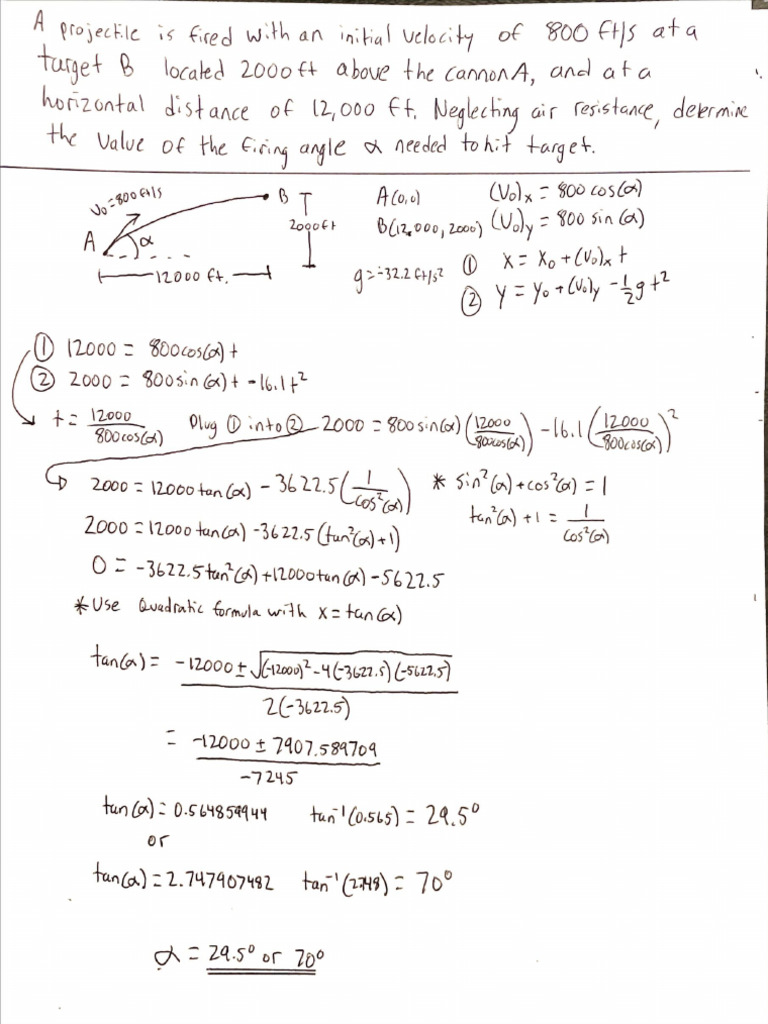 A projectile is fired with an initial velocity of 800 ft/s at a
target B located 2000 ft above the cannon A, and at a
horizontal distance of 12,000 ft. Neglecting air resistance, determine
the value of the firing angle α needed to hit target.
V₀=800ft/s
A
α
B
2000ft
12000 ft.
A(0,0)
B(12,000, 2000)
g=-32.2 ft/s²
(V₀)x = 800 cos(α)
(V₀)y = 800 sin(α)
① x = x₀ + (v₀)x t
② y = y₀ + (v₀)y - ½gt²
① 12000 = 800cos(α)t
② 2000 = 800sin(α)t - 16.1t²
t = 12000/800cos(α) Plug ① into ② 2000 = 800sin(α)(12000/800cos(α)) - 16.1(12000/800cos(α))²
2000 = 12000tan(α) - 3622.5(1/cos²(α)) * sin²(α) + cos²(α) = 1
2000 = 12000tan(α) - 3622.5(tan²(α)+1) tan²(α) + 1 = 1/cos²(α)
0 = -3622.5tan²(α) + 12000tan(α) - 5622.5
*Use Quadratic formula with x = tan(α)
tan(α) = -12000 ± √(-12000)² - 4(-3622.5)(-5622.5) / 2(-3622.5)
= -12000 ± 7907.589709 / -7245
tan(α) = 0.564859944 tan⁻¹(0.565) = 29.5°
or
tan(α) = 2.747907482 tan⁻¹(2.748) = 70°
α = 29.5° or 70°